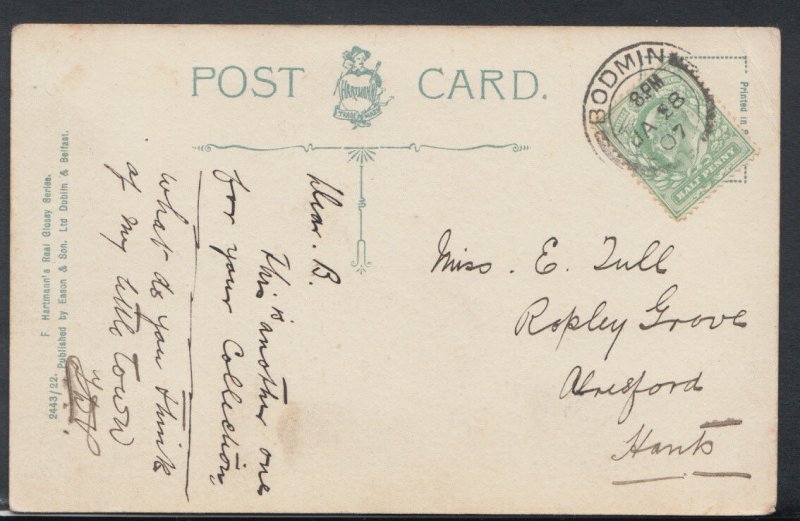 POST CARD.
HARTMANN
TRADE MARK
BODMIN
8 PM
JA 28
07
HALF PENNY
Printed in
Dear. B.
This is another one
for your Collection,
what do you think
of my little town
Miss. E. Tull
Ropley Grove
Alresford
Hants
F Hartmann's Real Glossy Series.
2443/22. Published by Eason & Son. Ltd Dublin & Belfast.